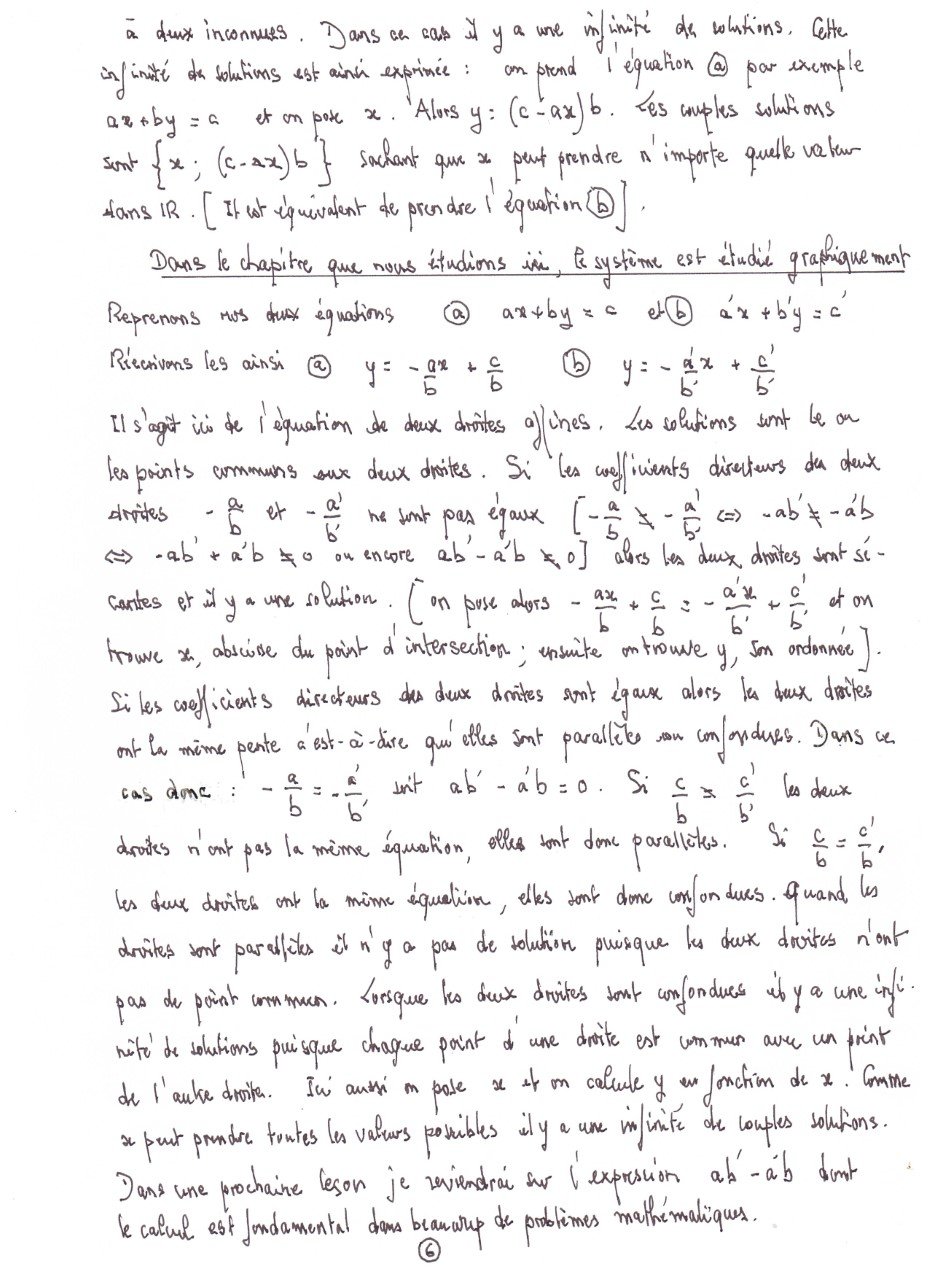 à deux inconnues. Dans ce cas il y a une infinité de solutions. Cette
infinité de solutions est ainsi exprimée : on prend l'équation ⓐ par exemple
ax+by = c et on pose x. Alors y = (c-ax)b. Les couples solutions
sont {x ; (c-ax)b} sachant que x peut prendre n'importe quelle valeur
dans IR. [Il est équivalent de prendre l'équation ⓑ].
Dans le chapitre que nous étudions ici, le système est étudié graphiquement
Reprenons nos deux équations ⓐ ax+by = c et ⓑ a'x+b'y = c'
Réécrivons les ainsi ⓐ y = -ax/b + c/b ⓑ y = -a'x/b' + c'/b'
Il s'agit ici de l'équation de deux droites affines. Les solutions sont le ou
les points communs aux deux droites. Si les coefficients directeurs des deux
droites -a/b et -a'/b' ne sont pas égaux [-a/b ≠ -a'/b' ⇔ -ab' ≠ -a'b
⇔ -ab' + a'b ≠ 0 ou encore ab' - a'b ≠ 0] alors les deux droites sont sé-
cantes et il y a une solution. [on pose alors -ax/b + c/b = -a'x/b' + c'/b' et on
trouve x, abscisse du point d'intersection ; ensuite on trouve y, son ordonnée].
Si les coefficients directeurs des deux droites sont égaux alors les deux droites
ont la même pente c'est-à-dire qu'elles sont parallèles ou confondues. Dans ce
cas donc : -a/b = -a'/b' soit ab' - a'b = 0. Si c/b ≠ c'/b' les deux
droites n'ont pas la même équation, elles sont donc parallètes. Si c/b = c'/b',
les deux droites ont la même équation, elles sont donc confondues. Quand les
droites sont parallèles il n'y a pas de solution puisque les deux droites n'ont
pas de point commun. Lorsque les deux droites sont confondues il y a une infi-
nité de solutions puisque chaque point d'une droite est commun avec un point
de l'autre droite. Ici aussi on pose x et on calcule y en fonction de x. Comme
x peut prendre toutes les valeurs possibles il y a une infinité de couples solutions.
Dans une prochaine leçon je reviendrai sur l'expression ab' - a'b dont
le calcul est fondamental dans beaucoup de problèmes mathématiques.
⑥